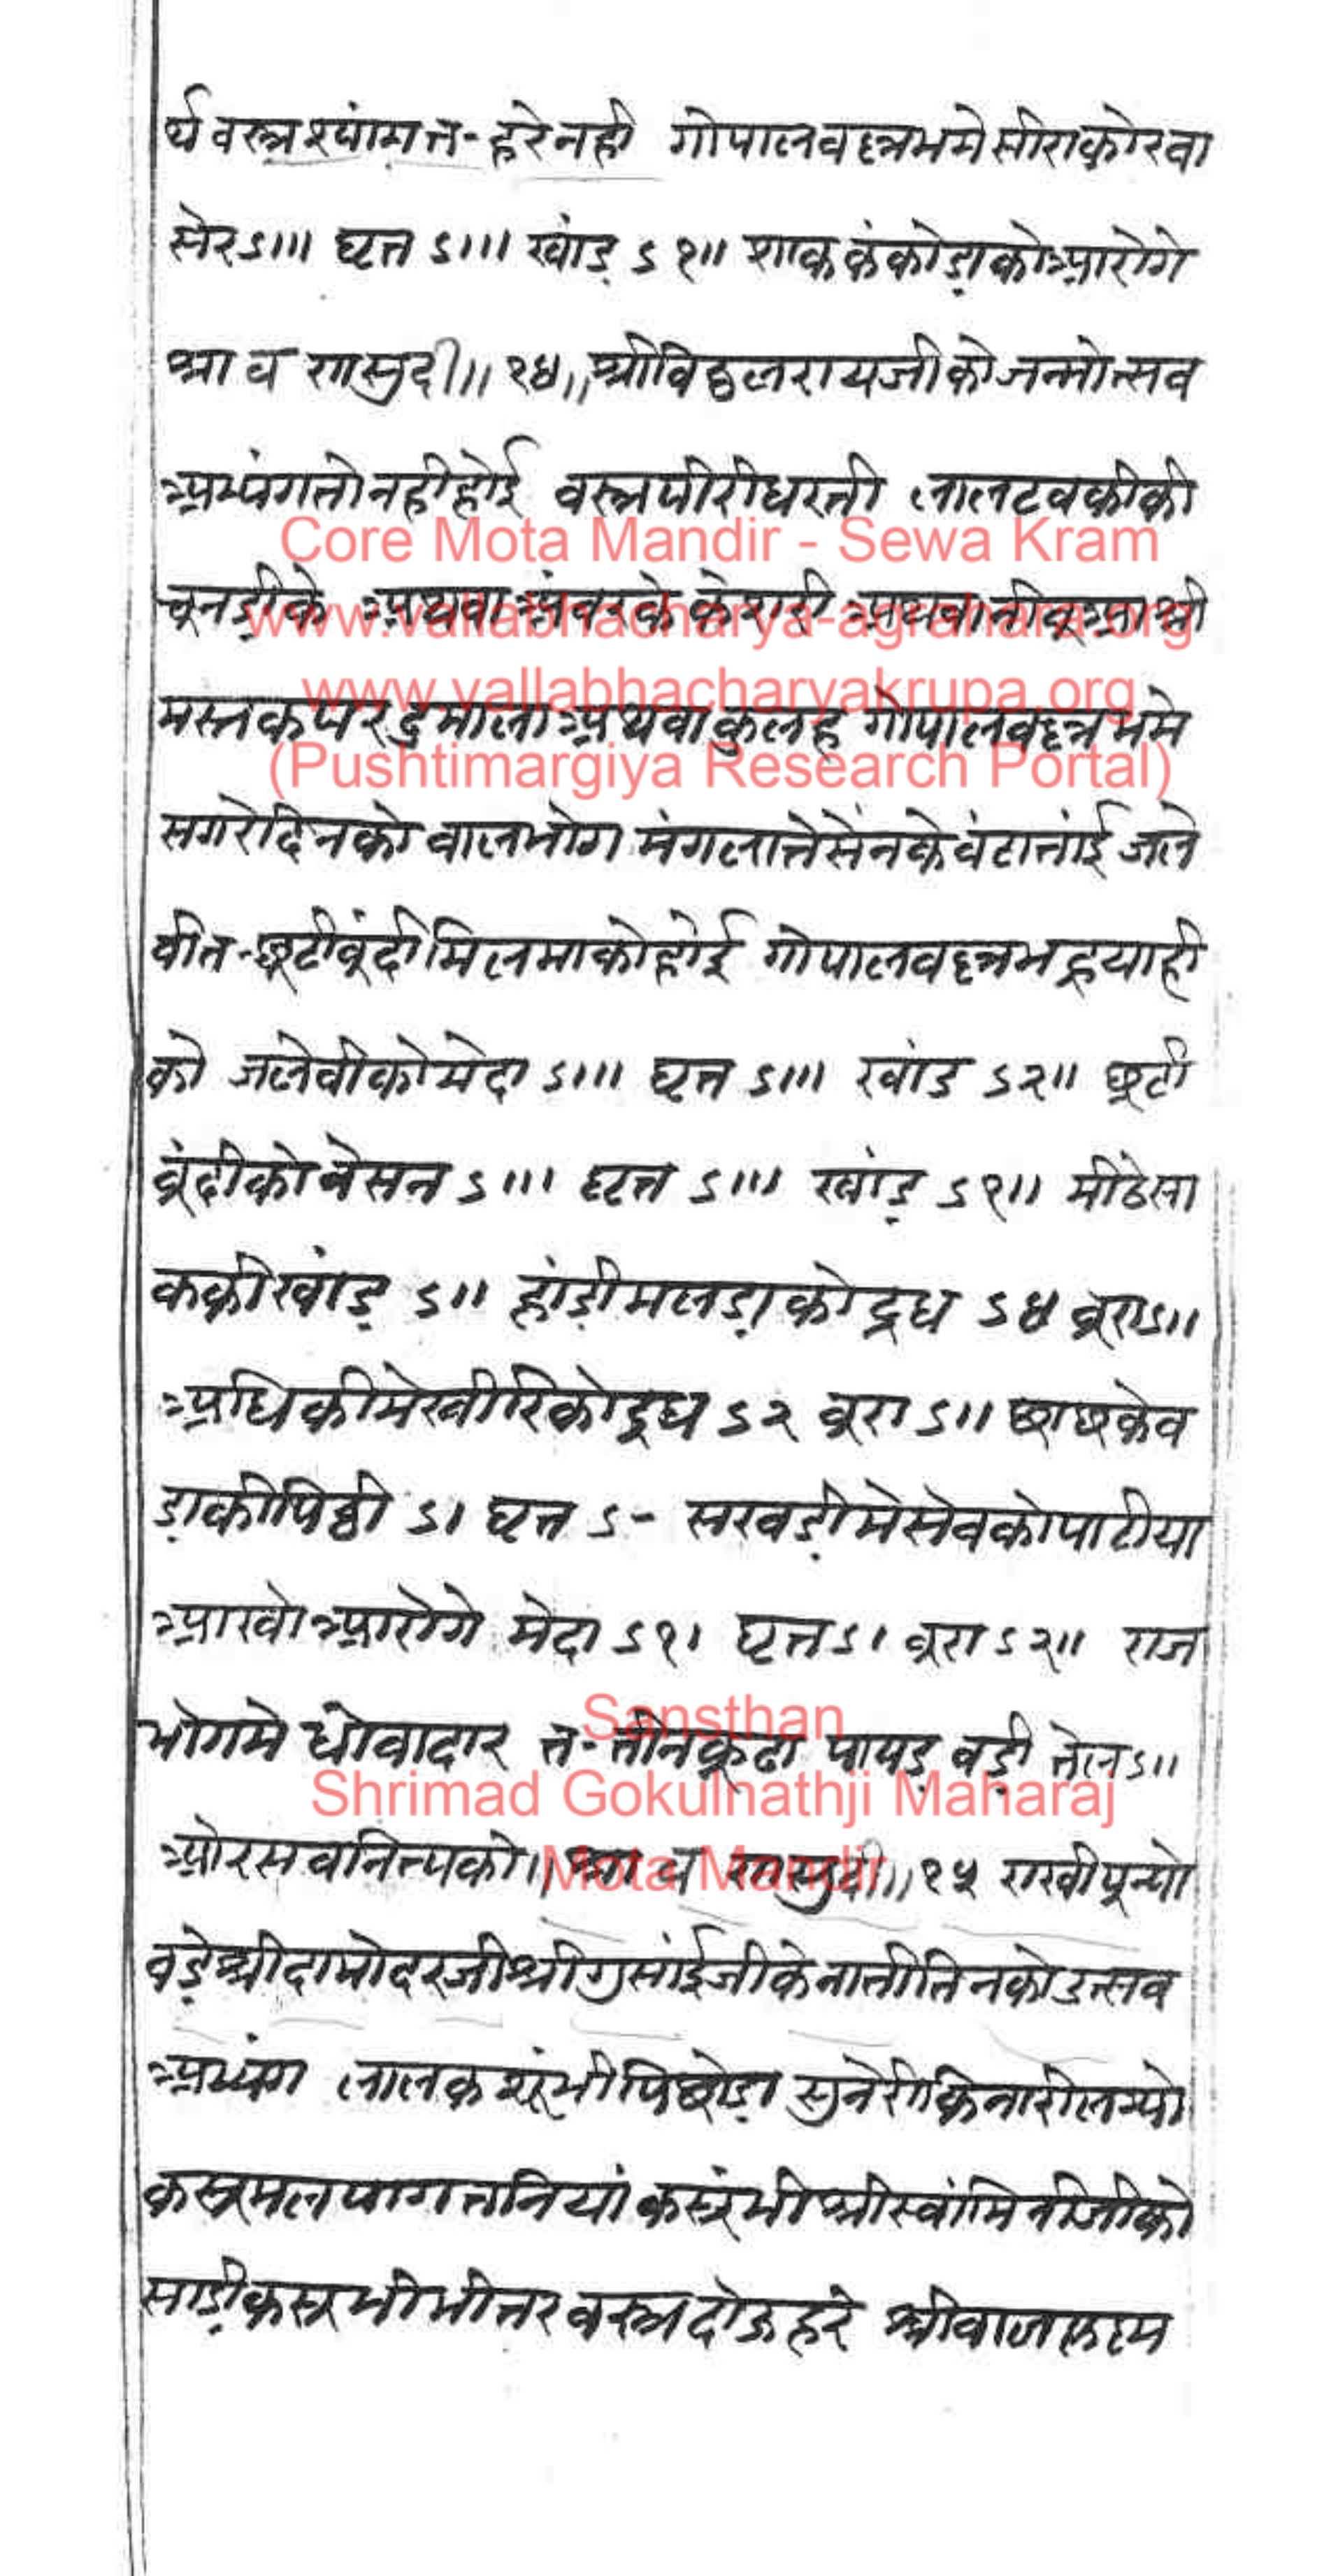 र्थ वस्त्र श्यांम त-हरे नही गोपालवल्लभमे सीराको रवा
सेर ऽ॥। घृत ऽ॥। खांड़ ऽ१॥ शाक कंकोड़ाको आरोगे
श्रावण सुदी॥ १४॥ श्रीविठ्ठलरायजीको जन्मोत्सव
अभ्यंग तो नही होई वस्त्र पीरी धरती लाल टवकीकी
चूनड़ीके अथवा केशरी अथवा श्री
मस्तक पर दुमालो अथवा कुलह गोपालवल्लभमे
सगरे दिनको वालभोग मंगलाते सेंनके वंटा तांई जले
वी त-छूटी वूंदी मिलमाको होई गोपालवल्लभ हू याही
को जलेवीको मेदा ऽ॥। घृत ऽ॥। खांड ऽ२॥ छूटी
वूंदीको वेसन ऽ॥। घृत ऽ॥। खांड़ ऽ१॥ मीठे सा
ककी खांड़ ऽ॥ हांड़ी मलड़ाको दूध ऽ४ वूरा ऽ॥
अधिकीमे खीरिको दूध ऽ२ वूरा ऽ॥ छाछ केव
ड़ाकी पिठ्ठी ऽ। घृत ऽ- सखड़ीमे सेवको पाटीया
आखो आरोगे मेदा ऽ१। घृत ऽ। वूरा ऽ२॥ राज
भोगमे धोवादार त-तीनकूढा पापड़ वड़ी तेल ऽ॥
ओर सव नित्यको॥ श्रावण सुदी॥ १५ राखी पून्यो
वड़े श्रीदामोदरजी श्रीगुसांईजीके नाती तिनको उत्सव
अभ्यंग लाल कशूंभी पिछोड़ा सुनेरी किनारी लग्यो
कसूमल पाग तनियां कसूंभी श्रीस्वांमिनीजीको
साड़ी कसूमी भीतर वस्त्र दोऊ हरे श्रीवालकृष्ण
Core Mota Mandir - Sewa Kram
www.vallabhacharya-agrahara.org
www.vallabhacharyakrupa.org
(Pushtimargiya Research Portal)
Sansthan
Shrimad Gokulnathji Maharaj
Mota Mandir